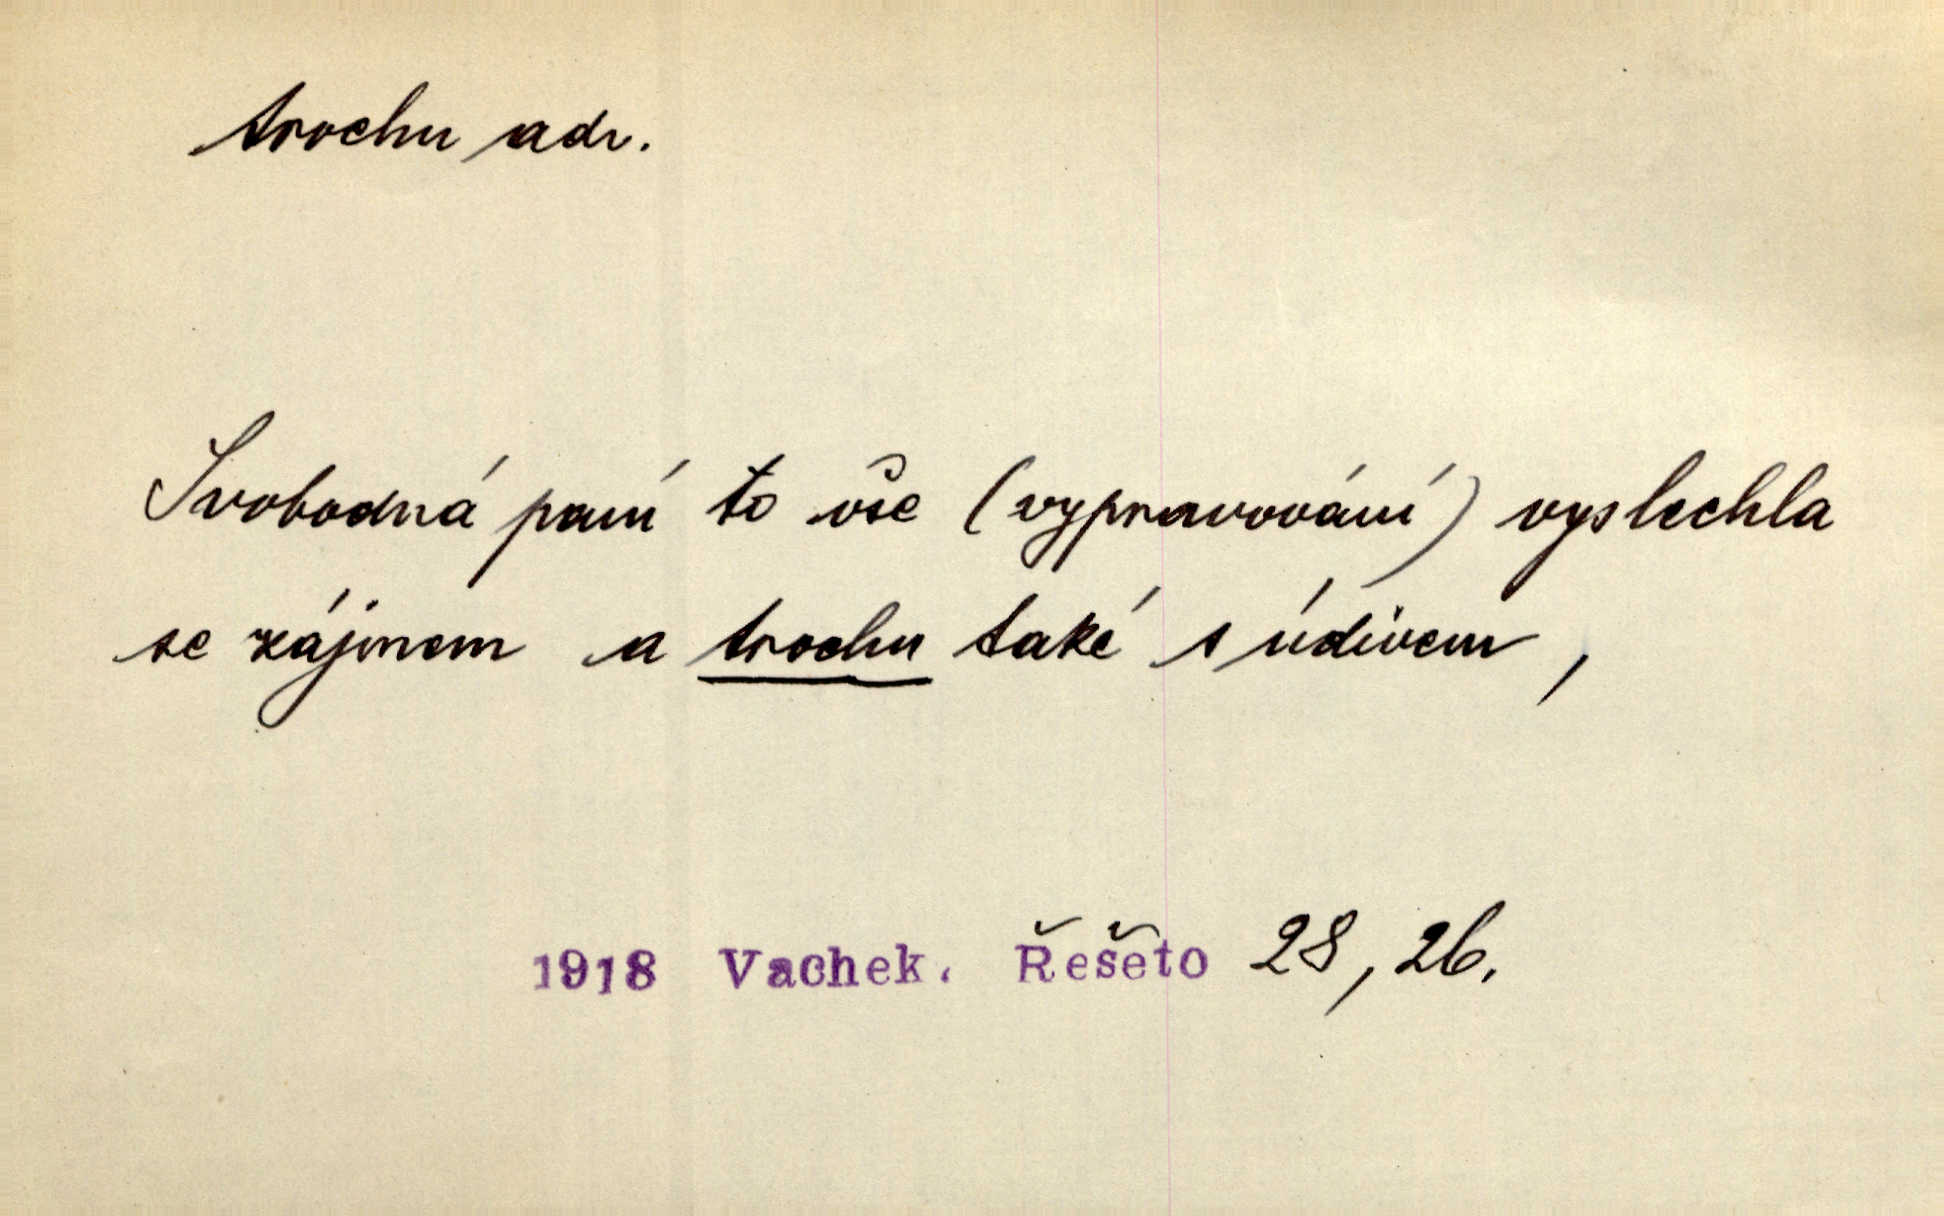 trochu adv.
Svobodná paní to vše (vypravování) vyslechla
se zájmem a trochu také s údivem,
1918 Vachek. Řešeto 28, 26.